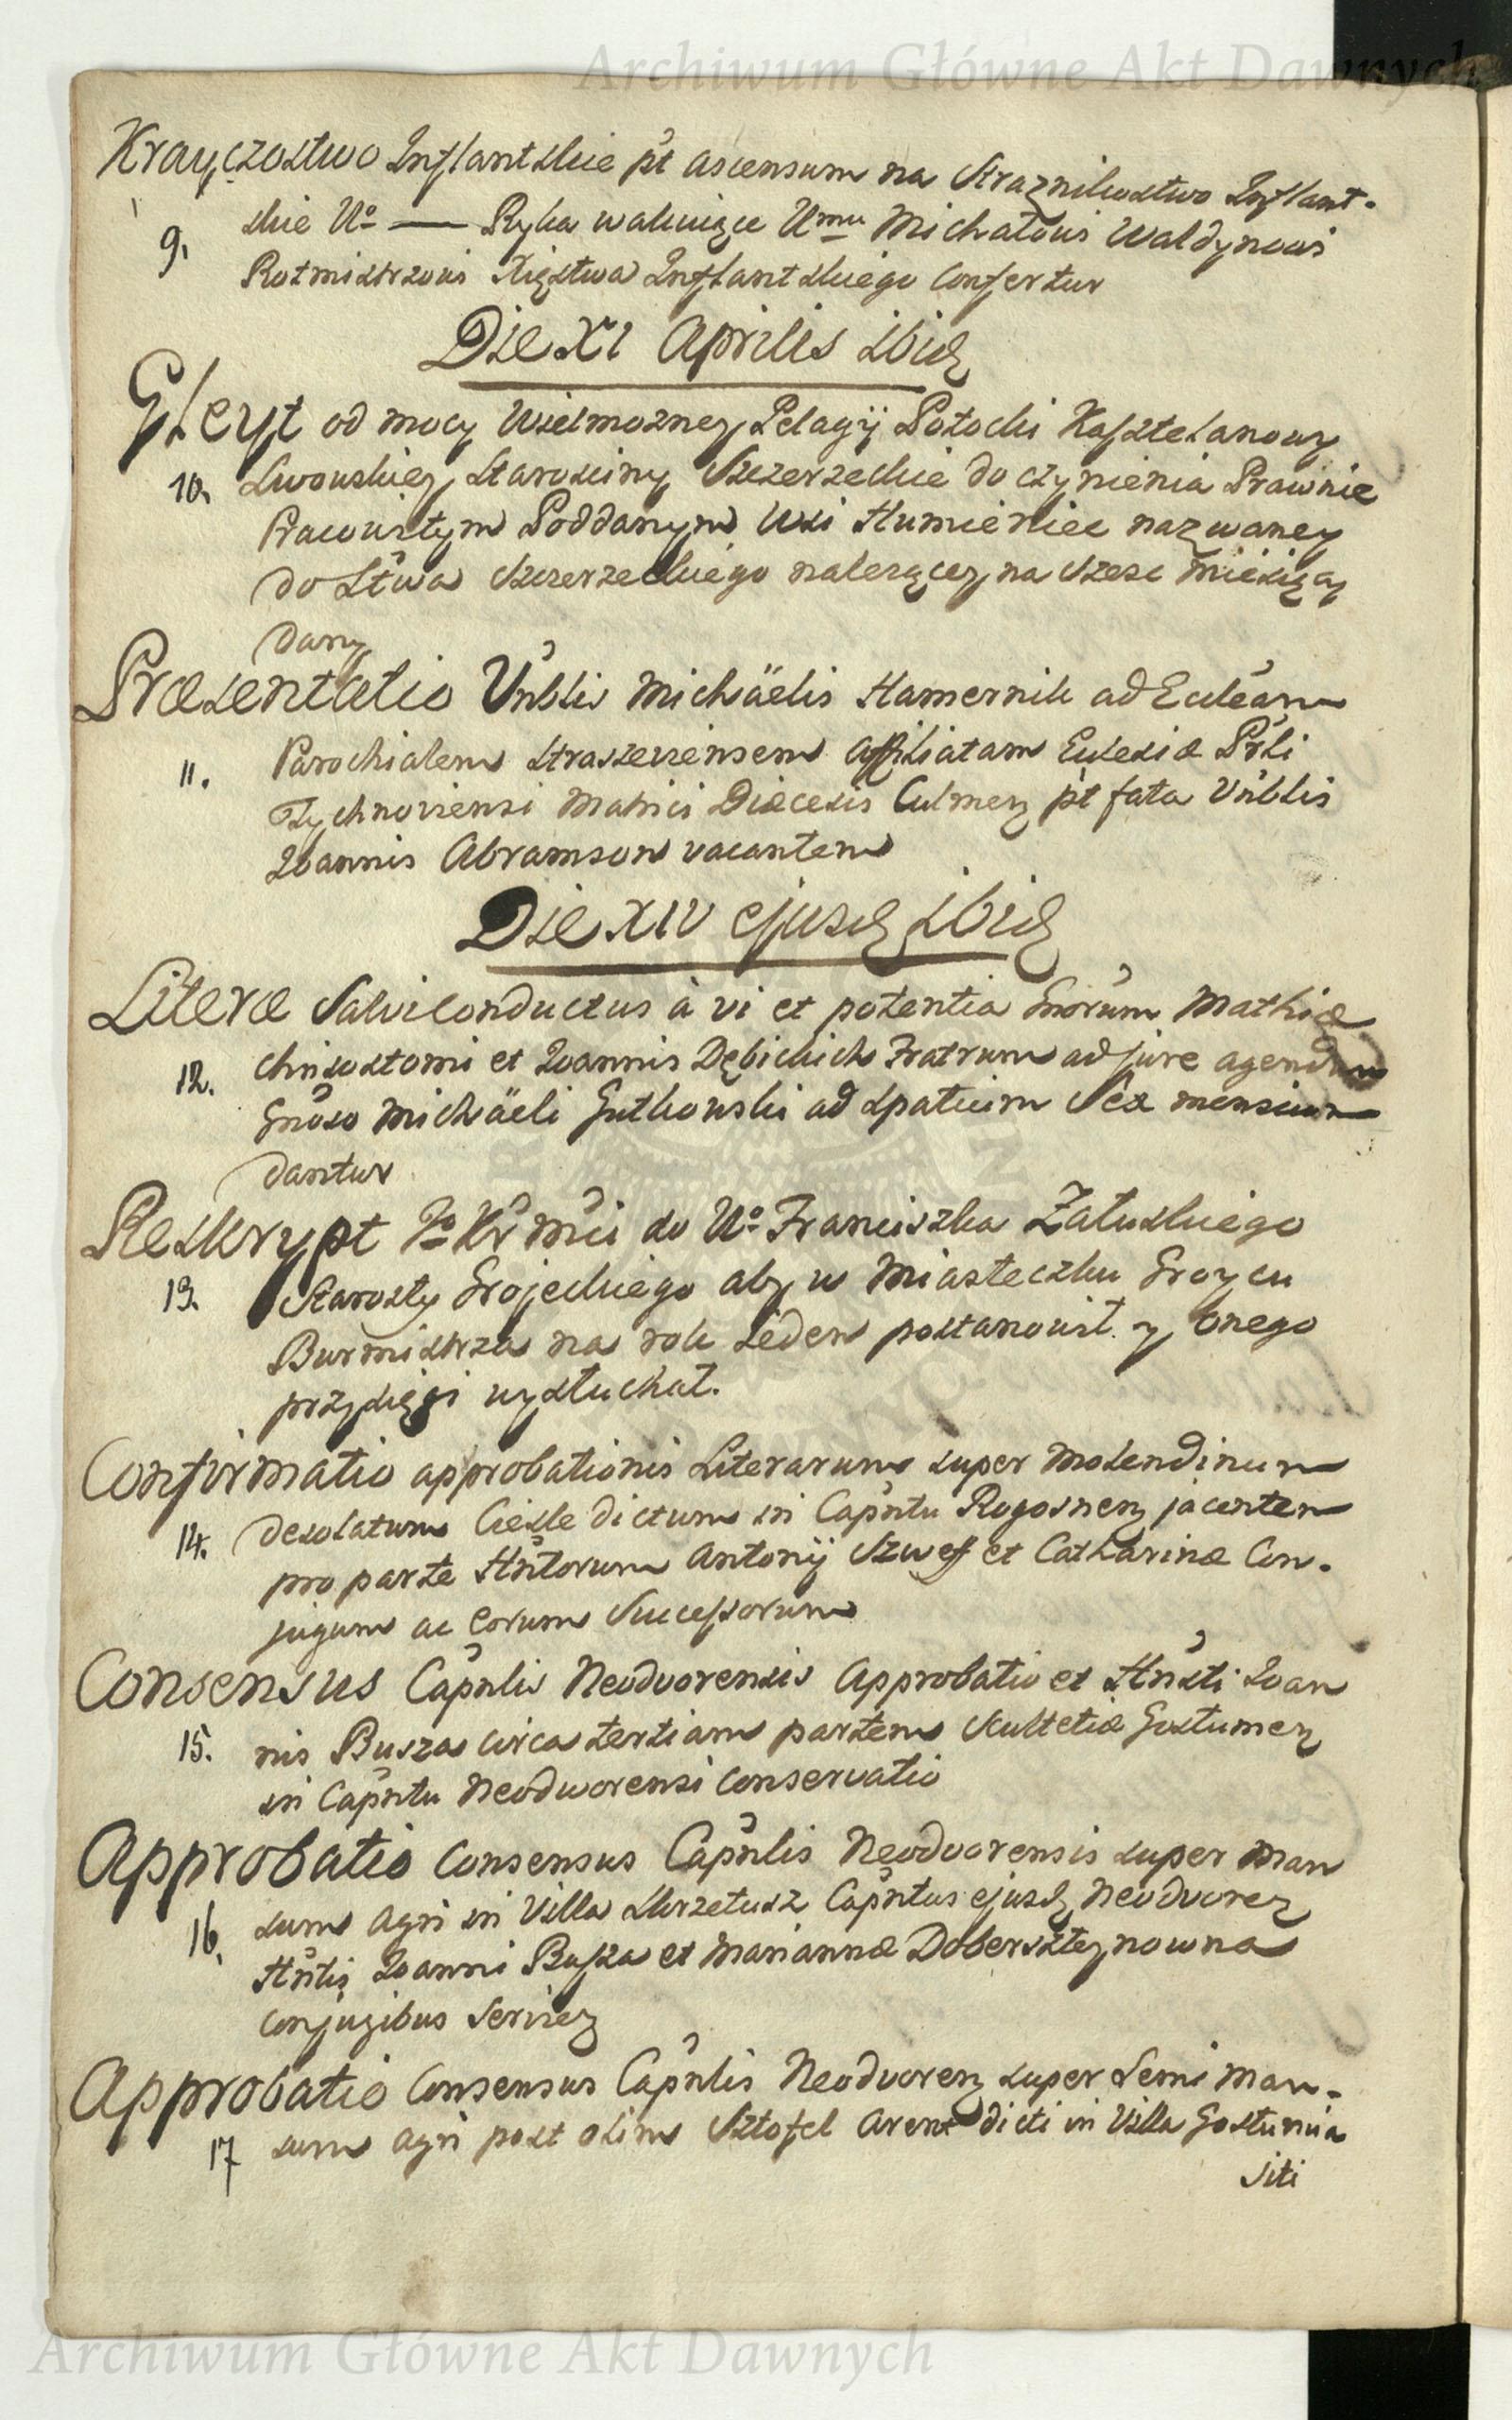 Archiwum Główne Akt Dawnych
Krayczostwo Inflantskie pt ascensum na Straznikostwo Inflant-
9. skie Uo — Ryka wakuiące Umu Michałowi Waldynowi
Rotmistrzowi Xięstwa Inflantskiego Confertur
Die XI Aprilis ibid
Gleyt od mocy Wielmozney Pelagij Potocki Kasztelanowy
10. Lwowskiey Starosciny Szczerzeckie do czynienia Prawnie
Pracowitym Poddanym Wsi Humieniec nazwaney
do Stwa Szczerzeckiego nalezącey na szesc miesięcy
dany
Præsentatio Vnblis Michäelis Hamernik ad Eccleam
11. Parochialem Straszeviensem affiliatam Ecclesiæ Prli
Tychnoviensi Matrici Diæcesis Culmen pt fata Vnblis
Ioannis Abramson vacantem
Die XIV ejusd ibid
Literæ Salviconductus à vi et potentia Gnorum Mathiæ
12. Chrisostomi et Ioannis Dębickich Fratrum ad jure agendum
Gnoso Michäeli Gutkowski ad spatium Sex mensium
dantur
Reskrypt Jo Kr Mci do Uo Franciszka Załuskiego
13. Starosty Grojeckiego aby w Miasteczku Groycu
Burmistrza na rok jeden postanowił y onego
przysięgi wysłuchał.
Confirmatio approbationis Literarum super molendinum
14. desolatum Ciesle dictum in Capntu Rogosnen jacentem
pro parte Hntorum Antonij Szweff et Catharinæ Con-
jugum ac eorum Successorum
Consensus Capnlis Neodvorensis Approbatio et Hnsti Ioan
15. nis Busza circa tertiam partem Scultetiæ Gostumen
in Capntu Neodworensi conservatio
Approbatio Consensus Capnlis Neodvorensis super Man
16. sum agri in Villa Skrzetusz Capntus ejusd Neodvoren
Hntis Ioanni Busza et Mariannæ Doberszteynowna
Conjugibus Servien
Approbatio Consensus Capnlis Neodvoren super Semi Man-
17 sum agri post olim Sztofel Arent dicti in Villa Gostumia
siti
Archiwum Główne Akt Dawnych